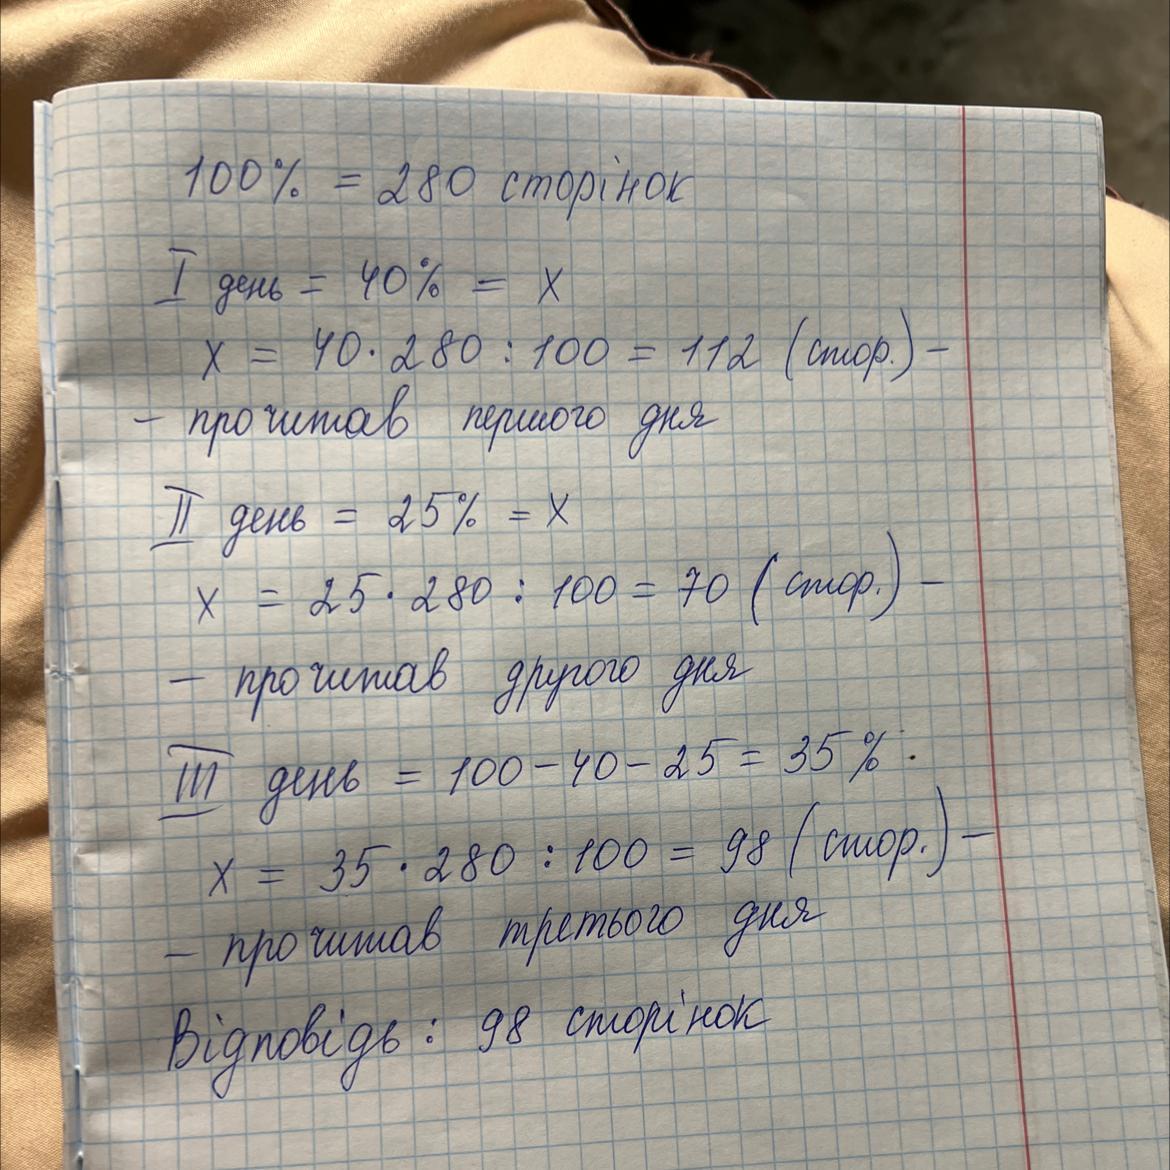 100% = 280 сторінок
I день = 40% = x
x = 40 · 280 : 100 = 112 (стор.) –
– прочитав першого дня
II день = 25% = x
x = 25 · 280 : 100 = 70 (стор.) –
– прочитав другого дня
III день = 100 – 40 – 25 = 35%
x = 35 · 280 : 100 = 98 (стор.) –
– прочитав третього дня
Відповідь : 98 сторінок